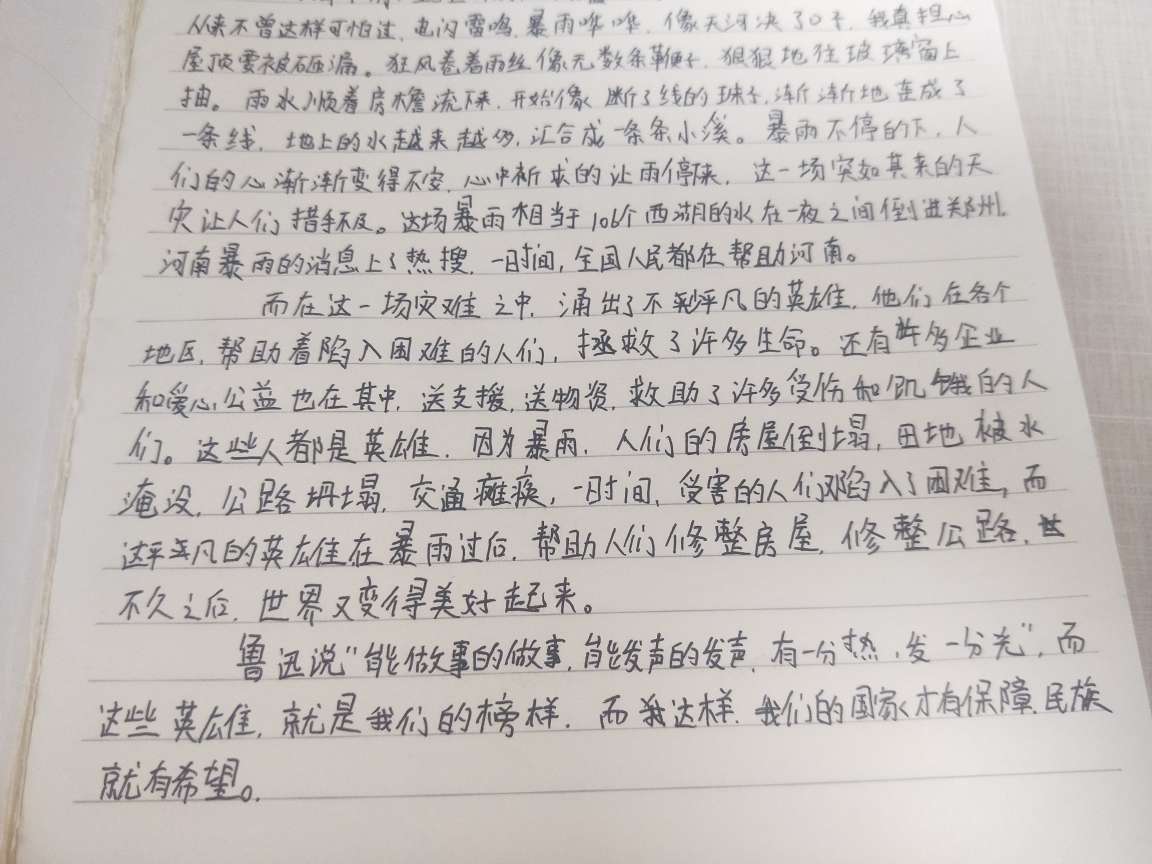 从来不曾这样可怕过，电闪雷鸣，暴雨哗哗，像天河决了口子，我真担心
屋顶要被砸漏。狂风卷着雨丝像无数条鞭子，狠狠地往玻璃窗上
抽。雨水顺着房檐流下来，开始像断了线的珠子，渐渐地连成了
一条线，地上的水越来越多，汇合成一条条小溪。暴雨不停的下，人
们的心渐渐变得不安，心中祈求的让雨停下来，这一场突如其来的天
灾让人们措手不及。这场暴雨相当于106个西湖的水在一夜之间倒进郑州，
河南暴雨的消息上了热搜，一时间，全国人民都在帮助河南。
而在这一场灾难之中，涌出了不平凡的英雄，他们在各个
地区，帮助着陷入困难的人们，拯救了许多生命。还有许多企业
和爱心公益也在其中，送支援，送物资，救助了许多受伤和饥饿的人
们。这些人都是英雄，因为暴雨，人们的房屋倒塌，田地被水
淹没，公路坍塌，交通瘫痪，一时间，受害的人们陷入了困难，而
这平凡的英雄在暴雨过后，帮助人们修整房屋，修整公路，
不久之后，世界又变得美好起来。
鲁迅说“能做事的做事，能发声的发声，有一分热，发一分光”，而
这些英雄，就是我们的榜样，而这样，我们的国家才有保障，民族
就有希望。